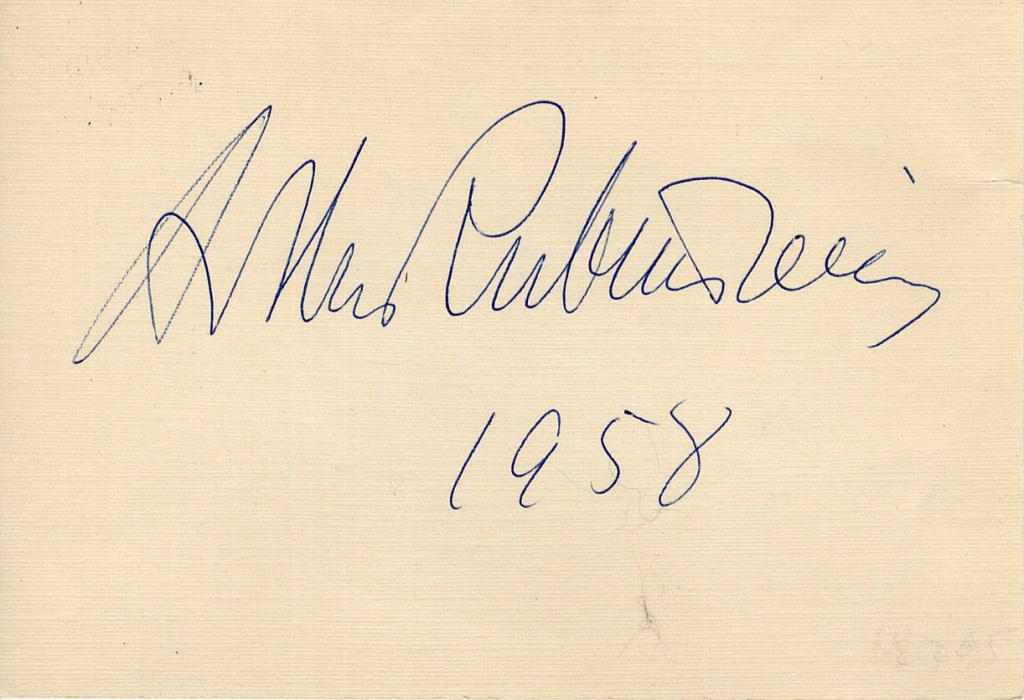 Arthur Rubinstein
1958